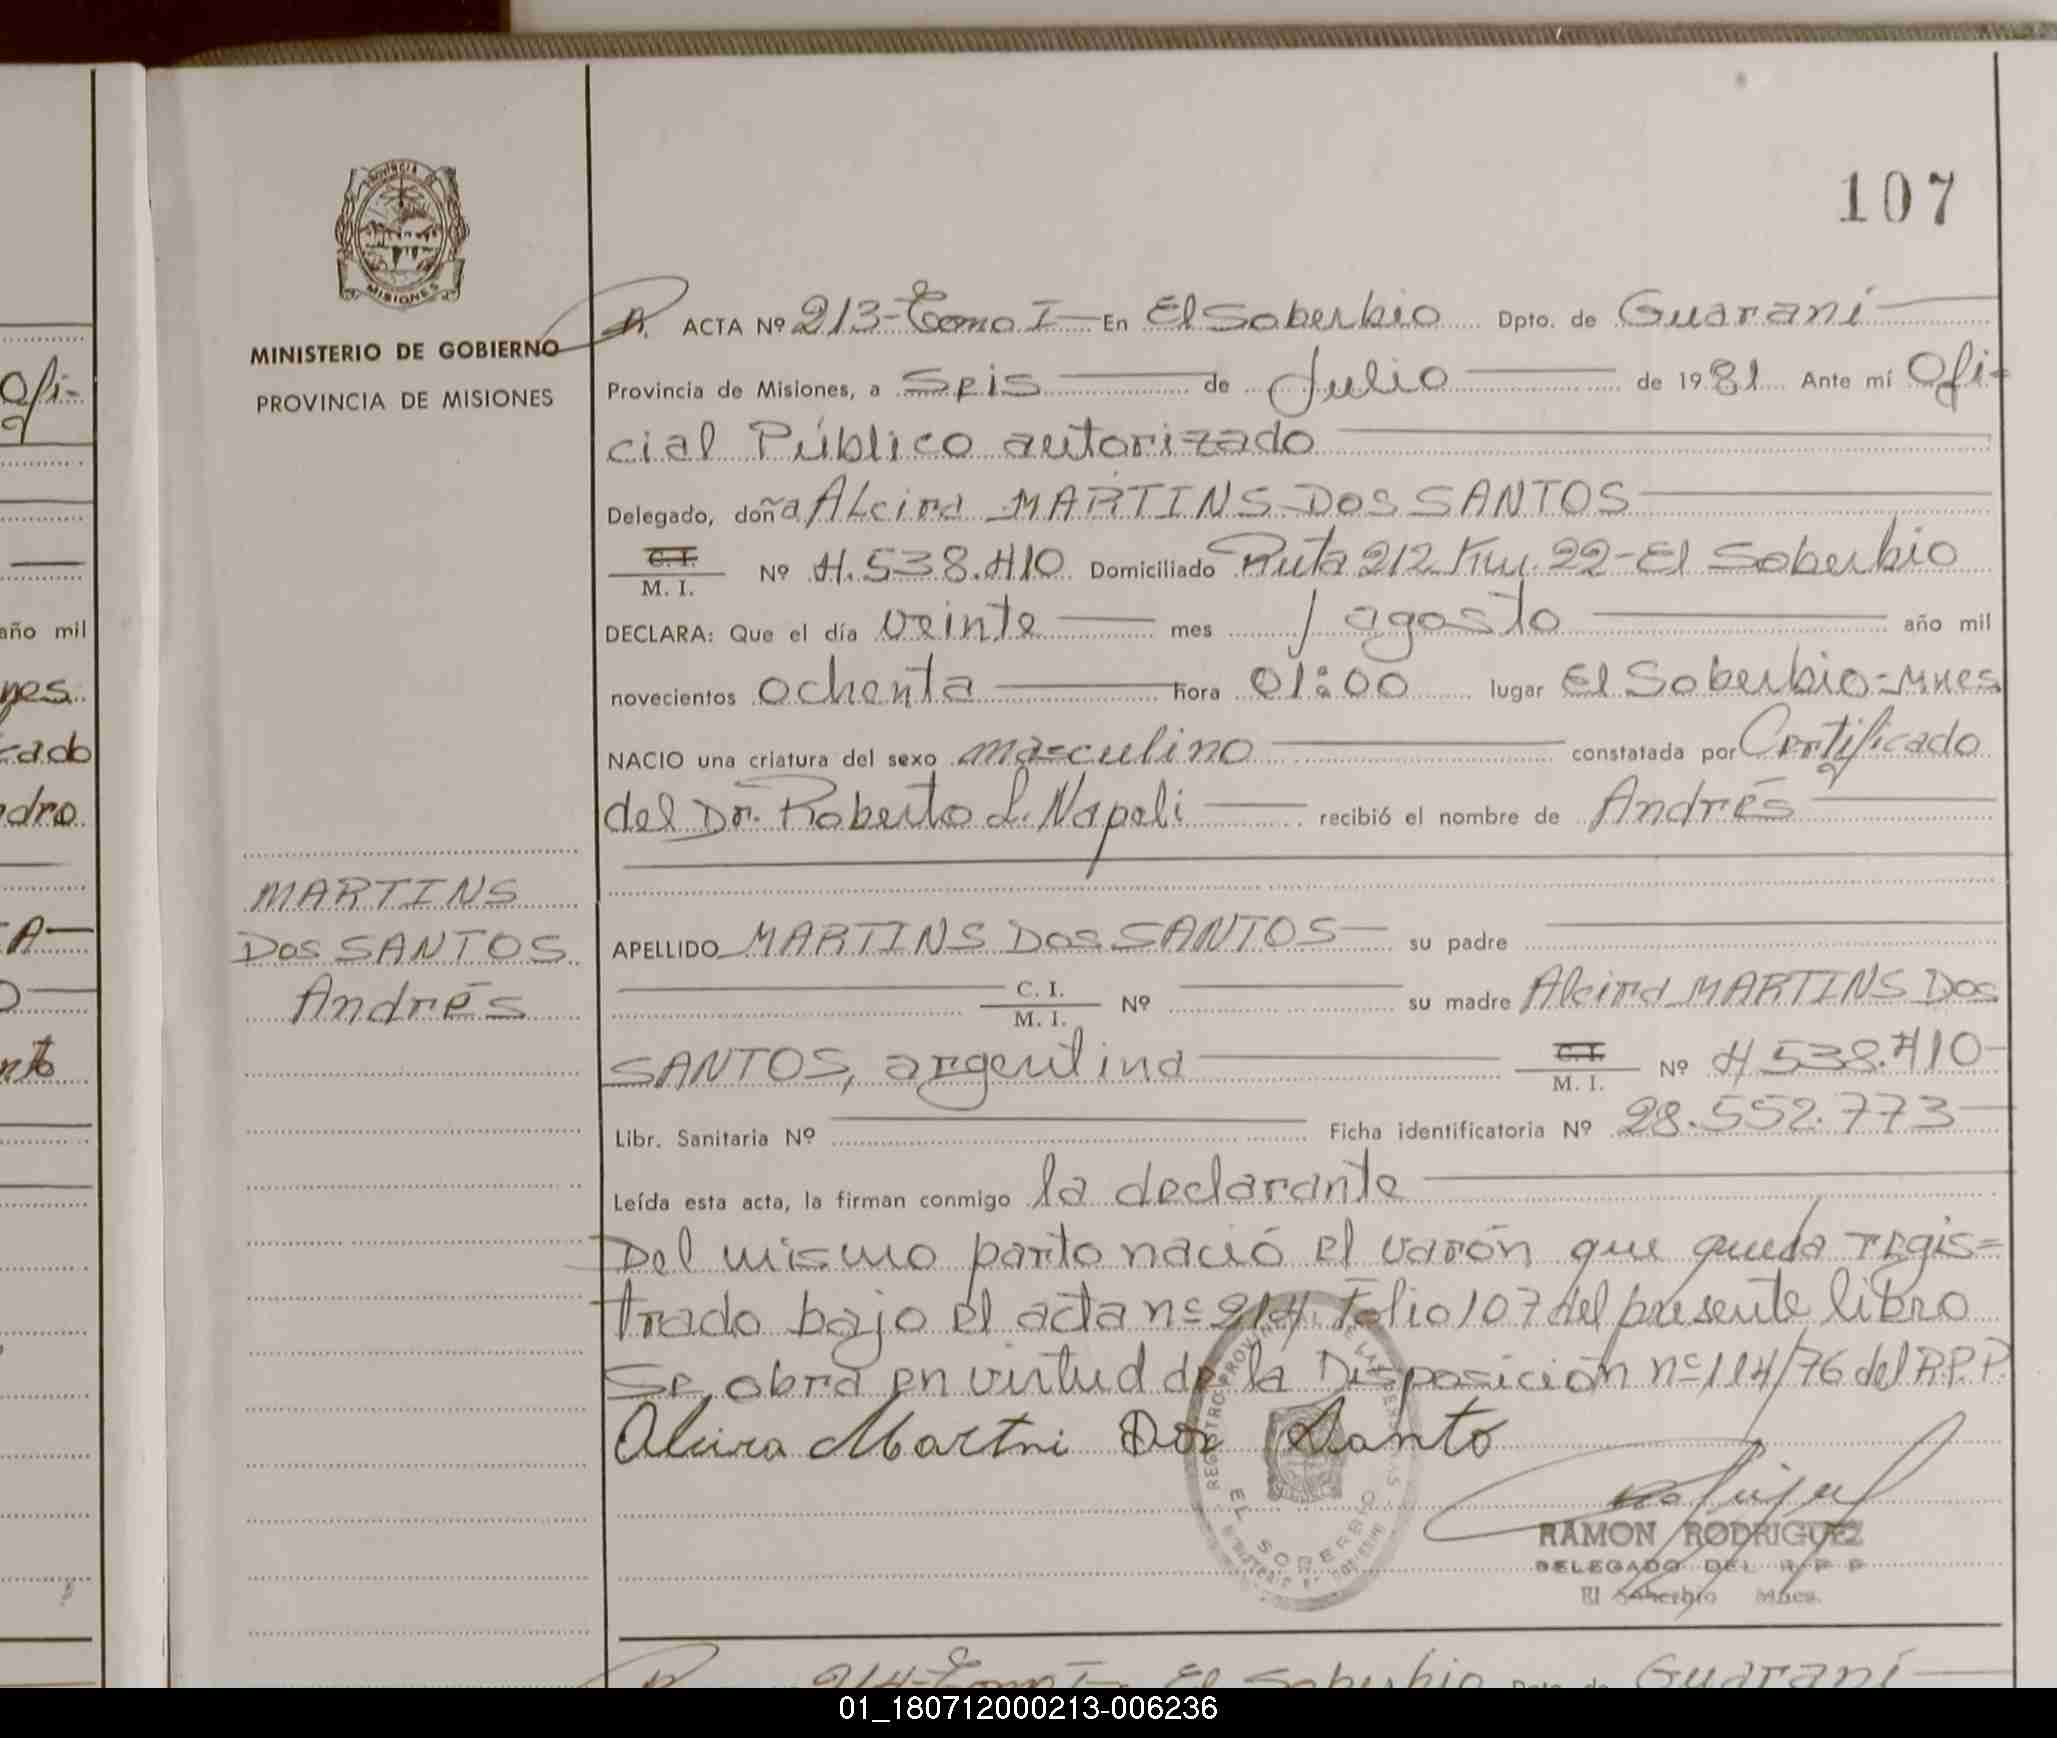 107
PROVINCIA DE
MISIONES
MINISTERIO DE GOBIERNO
PROVINCIA DE MISIONES
A. ACTA Nº 213-Tomo I En El Soberbio Dpto. de Guaraní
Provincia de Misiones, a Seis de Julio de 1981 Ante mí Ofi=
cial Público autorizado
Delegado, doña Alcira MARTINS DOS SANTOS
C. I.
M. I. Nº 4.538.410 Domiciliado Ruta 212 Km. 22-El Soberbio
DECLARA: Que el día veinte mes agosto año mil
novecientos ochenta hora 01:00 lugar El Soberbio-Mnes
NACIO una criatura del sexo masculino constatada por Certificado
del Dr. Roberto L. Napoli recibió el nombre de Andrés
MARTINS
DOS SANTOS
Andrés
APELLIDO MARTINS DOS SANTOS su padre
C. I.
M. I. Nº su madre Alcira MARTINS DOS
SANTOS, argentina C. I.
M. I. Nº 4.538.410-
Libr. Sanitaria Nº Ficha identificatoria Nº 28.552.773
Leída esta acta, la firman conmigo la declarante
Del mismo parto nació el varón que queda regis=
trado bajo el acta nº 214 Folio 107 del presente libro
Se obra en virtud de la Disposición nº 114/76 del R.P.P.
Alcira Martni Dos Santo
REGISTRO PROVINCIAL DE LAS PERSONAS
EL SOBERBIO
RAMON RODRIGUEZ
DELEGADO DEL R P P
El Soberbio Mnes.
214-Tomo I El Soberbio Dpto. de Guaraní
Ofi-
año mil
nes.
cado
ndro
TA
O
nto
01_180712000213-006236